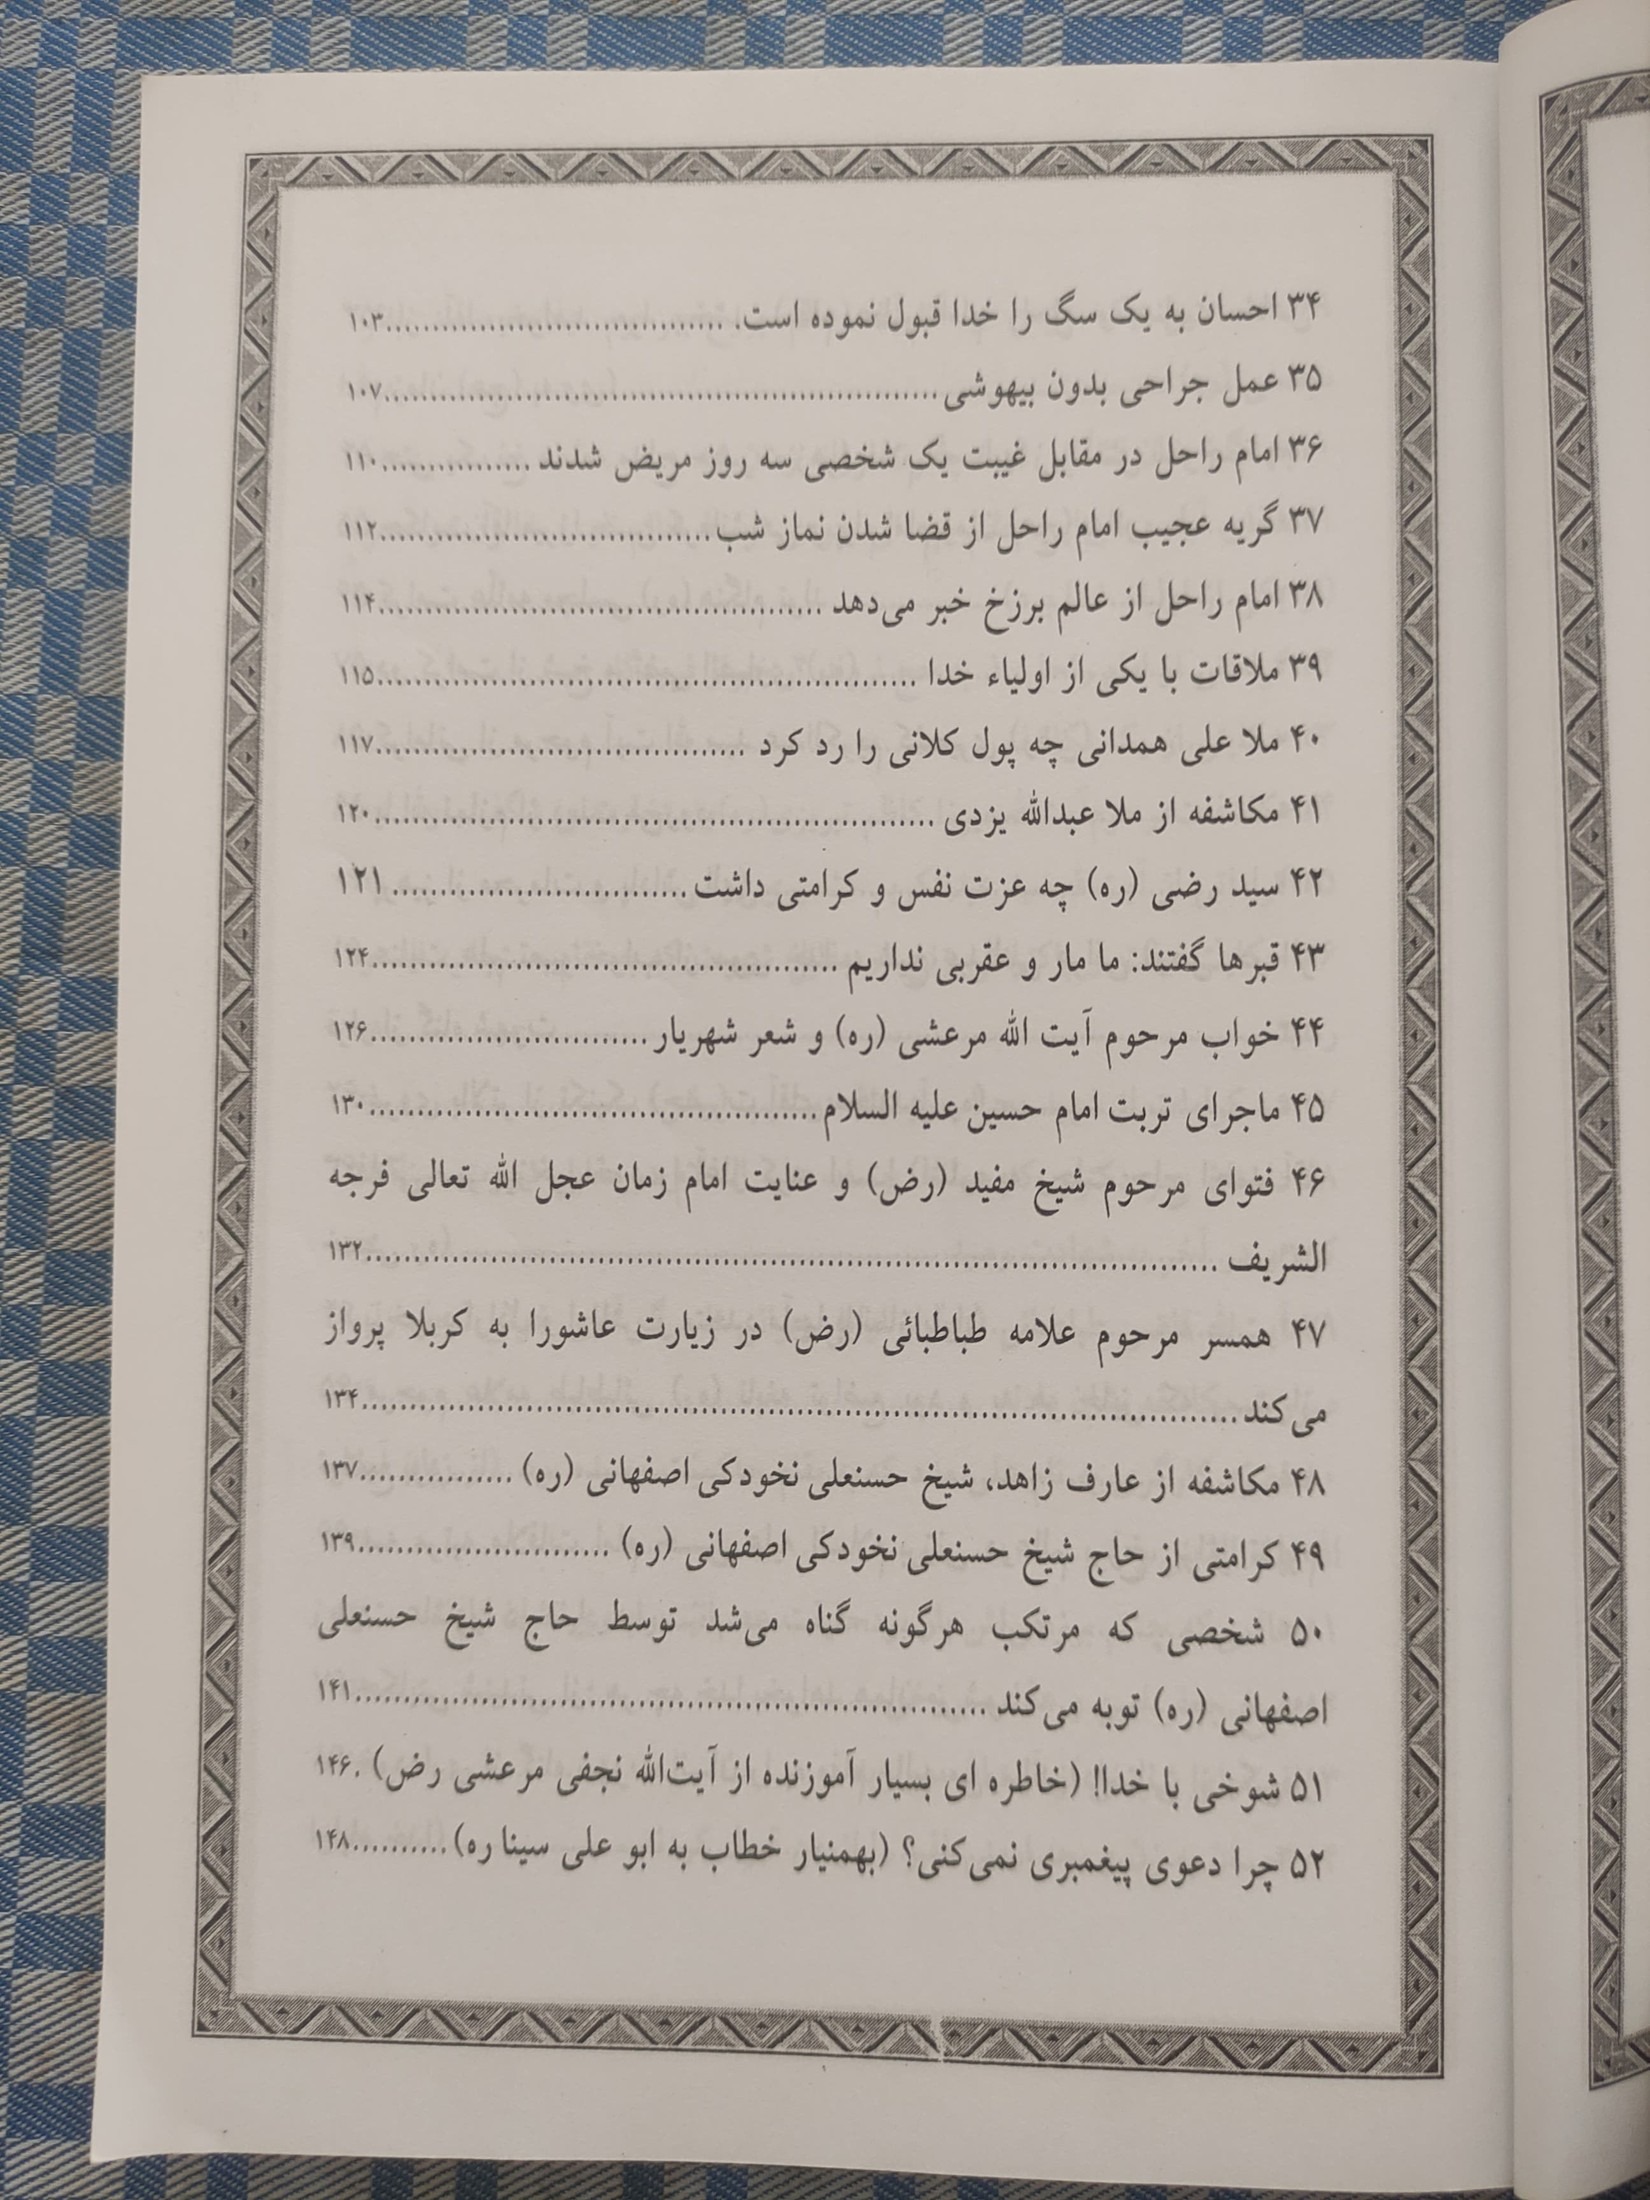 ۳۴ احسان به یک سگ را خدا قبول نموده است. ....................................۱۰۳
۳۵ عمل جراحی بدون بیهوشی............................................................۱۰۷
۳۶ امام راحل در مقابل غیبت یک شخصی سه روز مریض شدند ................۱۱۰
۳۷ گریه عجیب امام راحل از قضا شدن نماز شب....................................۱۱۲
۳۸ امام راحل از عالم برزخ خبر می‌دهد ................................................۱۱۴
۳۹ ملاقات با یکی از اولیاء خدا ..........................................................۱۱۵
۴۰ ملا علی همدانی چه پول کلانی را رد کرد ........................................۱۱۷
۴۱ مکاشفه از ملا عبدالله یزدی ............................................................۱۲۰
۴۲ سید رضی (ره) چه عزت نفس و کرامتی داشت................................۱۲۱
۴۳ قبرها گفتند: ما مار و عقربی نداریم ..................................................۱۲۴
۴۴ خواب مرحوم آیت الله مرعشی (ره) و شعر شهریار..............................۱۲۶
۴۵ ماجرای تربت امام حسین علیه السلام................................................۱۳۰
۴۶ فتوای مرحوم شیخ مفید (رض) و عنایت امام زمان عجل الله تعالی فرجه
الشریف ..........................................................................................۱۳۲
۴۷ همسر مرحوم علامه طباطبائی (رض) در زیارت عاشورا به کربلا پرواز
می‌کند............................................................................................۱۳۴
۴۸ مکاشفه از عارف زاهد، شیخ حسنعلی نخودکی اصفهانی (ره) ................۱۳۷
۴۹ کرامتی از حاج شیخ حسنعلی نخودکی اصفهانی (ره) ...........................۱۳۹
۵۰ شخصی که مرتکب هرگونه گناه می‌شد توسط حاج شیخ حسنعلی
اصفهانی (ره) توبه می‌کند ..................................................................۱۴۱
۵۱ شوخی با خدا! (خاطره ای بسیار آموزنده از آیت‌الله نجفی مرعشی رض) .۱۴۶
۵۲ چرا دعوی پیغمبری نمی‌کنی؟ (بهمنیار خطاب به ابو علی سینا ره)..........۱۴۸